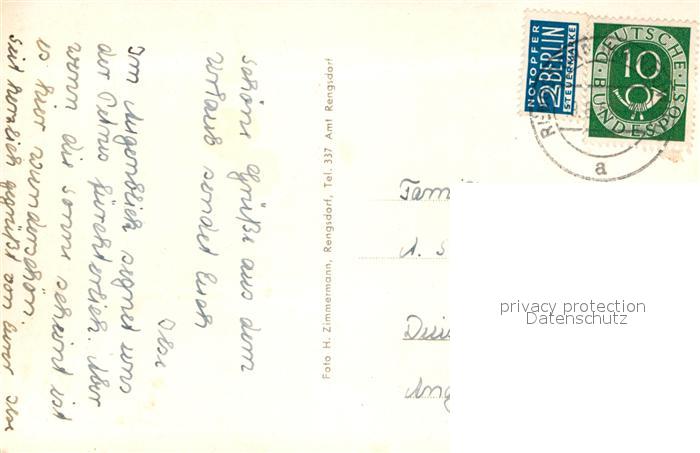 schöne Grüße aus dem
Urlaub sendet Euch
Ilse
Im Augenblick segnet uns
der Petrus fürchterlich. Aber
wenn die Sonne scheint ist
es hier wunderschön
Seid herzlich gegrüßt von Eurer Ilse
Foto H. Zimmermann, Rengsdorf, Tel. 337 Amt Rengsdorf
NOTOPFER
2 BERLIN
STEUERMARKE
DEUTSCHE
10
BUNDESPOST
a
Fami
A. S
Ang
privacy protection
Datenschutz